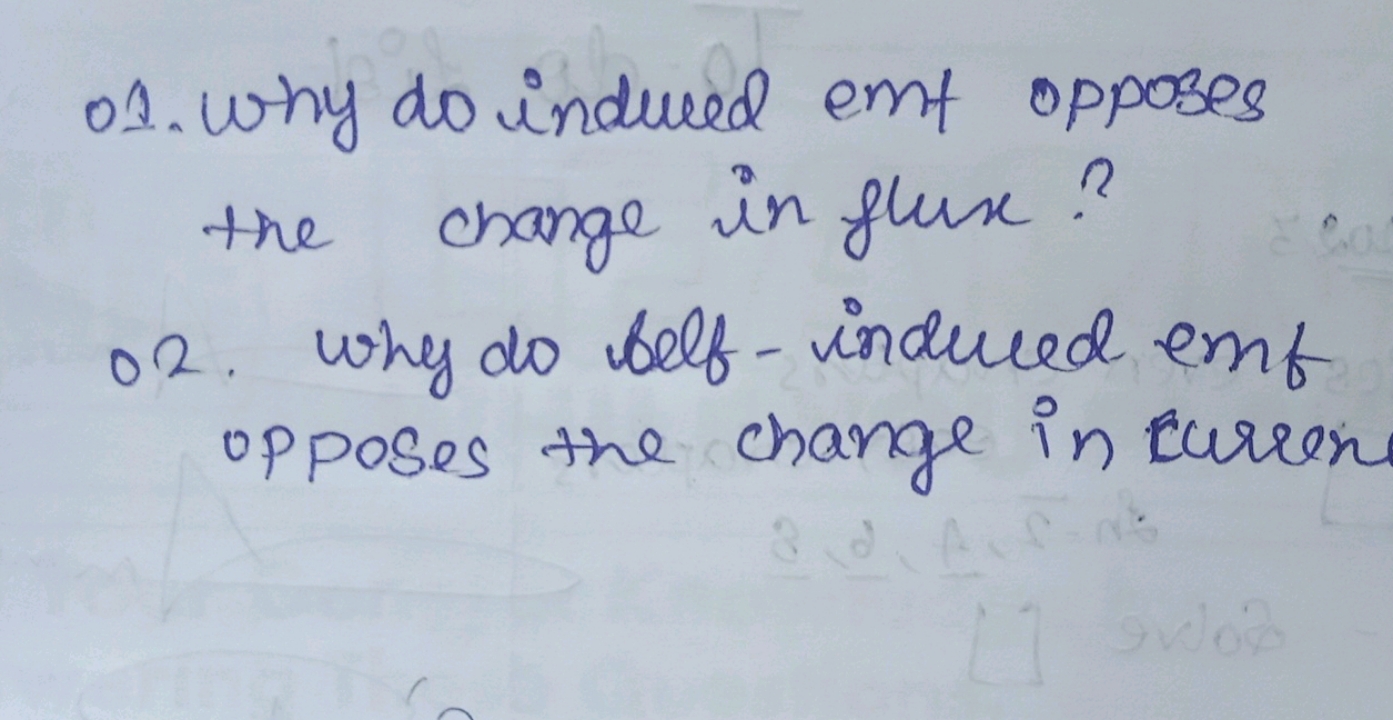 01. Why do induced emf opposes
the change in flux ?
02. why do self - induced emf
opposes the change in curren